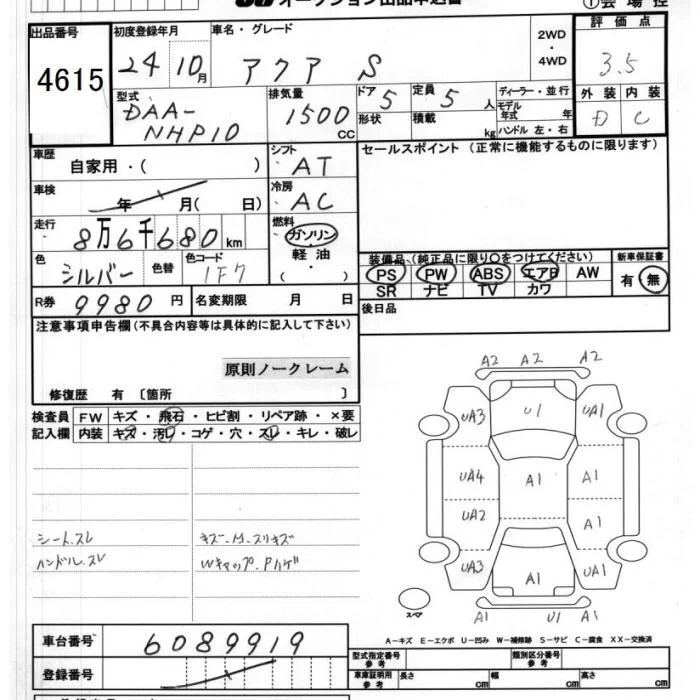 オークション出品申込書
①会場控
出品番号
4615
初度登録年月
24 10月
車名・グレード
アクア S
2WD
・
4WD
評価点
3.5
外装 内装
D C
型式
DAA-
NHP10
排気量
1500 CC
ドア 5
形状
定員 5 人
積載 kg
ディーラー・並行
モデル年式 年
ハンドル 左・右
車歴
自家用・( )
シフト
・AT
セールスポイント (正常に機能するものに限ります)
車検
年 月( 日)
冷房
・AC
走行
8万6千680km
燃料
ガソリン
軽油
( ・ )
色
シルバー
色替
色コード
1F7
R券 9980円
名変期限 月 日
装備品 (純正品に限り○をつけてください)
PS PW ABS エアB AW
SR ナビ TV カワ
新車保証書
有・無
後日品
注意事項申告欄(不具合内容等は具体的に記入して下さい)
原則ノークレーム
修復歴 有 〔箇所 〕
検査員 FW キズ・飛石・ヒビ割・リペア跡・×要
記入欄 内装 キズ・汚レ・コゲ・穴・スレ・キレ・破レ
シートスレ
ハンドルスレ
キズ・凹・スリキズ
Wキャップ・Pハゲ
A2 A2 A2
UA3 U1 UA1
UA4 A1 A1
UA2 A1
UA3 A1 UA1
A1 U1 A1
スペア
A－キズ E－エクボ U－凹み W－補修跡 S－サビ C－腐食 XX－交換済
車台番号 6089919
登録番号
型式指定番号
参考
類別区分番号
参考
車庫証明用
参考
長さ cm 幅 cm 高さ cm